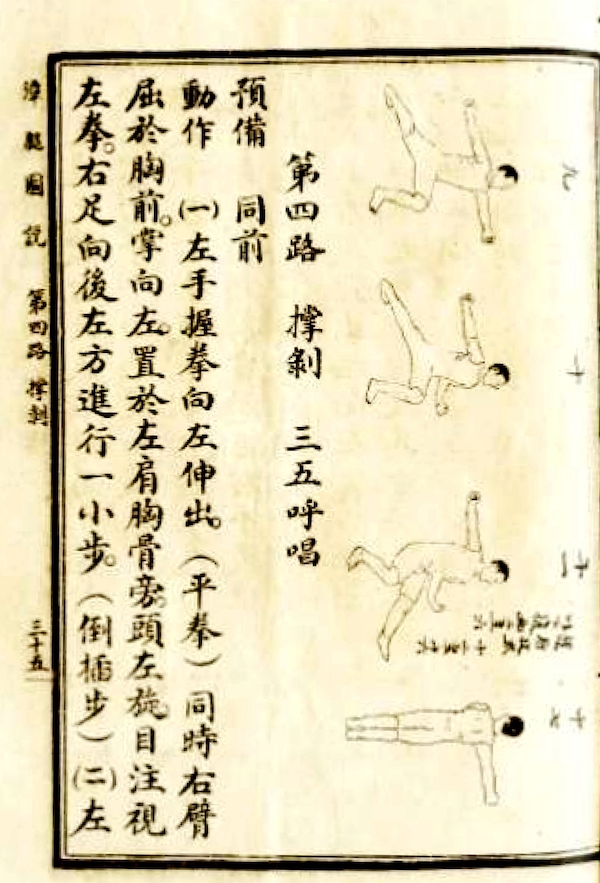 九
十
十一
十七
第四路 撑剝 三五呼唱
預備 同前
動作 (一)左手握拳向左伸出。(平拳)同時右臂
屈於胸前。掌向左。置於左肩胸骨旁。頭左旋。目注視
左拳。右足向後左方進行一小步。(倒插步)(二)左
潭腿圖說 第四路 撑剝 三十五